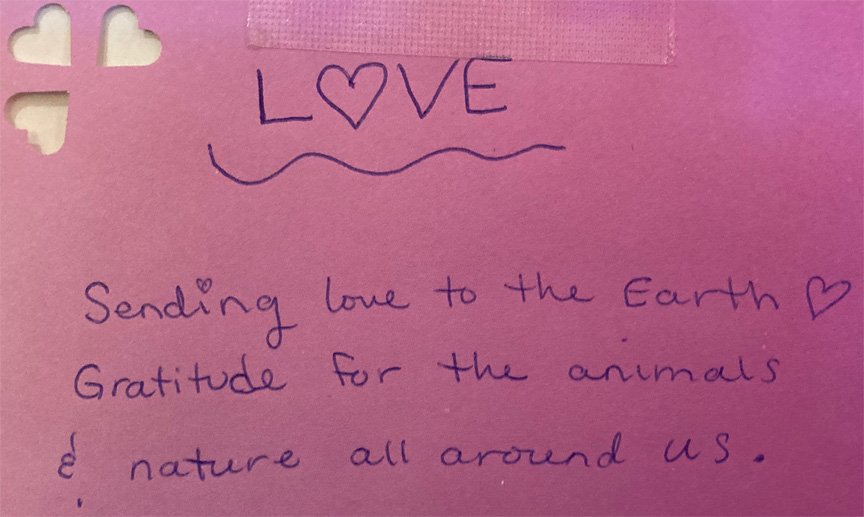 L♡VE
Sending love to the Earth ♡
Gratitude for the animals
& nature all around us.